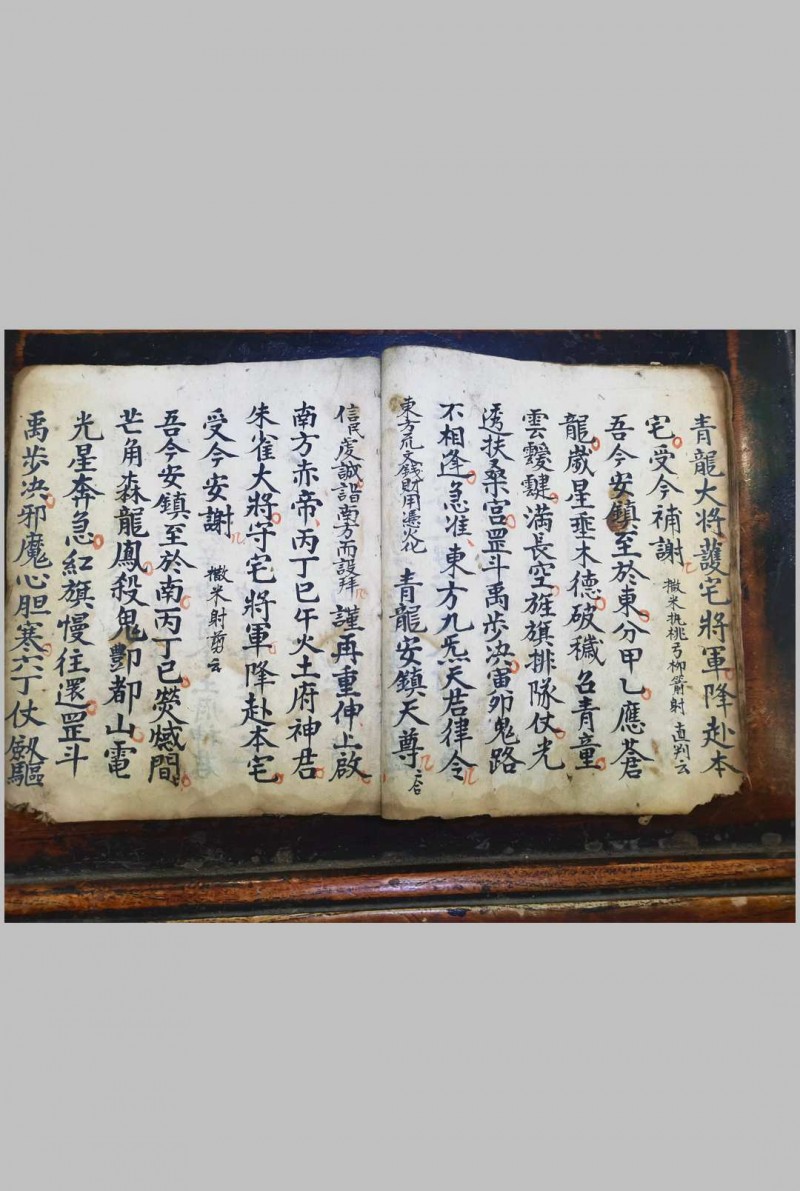 青龍大将護宅將軍降赴本
宅受今補謝 撒米執桃弓柳箭射 直判云
吾今安鎮至於東分甲乙應蒼
龍歲星垂木德破穢召青童
雲靉靆滿長空旌旗排隊仗光
透扶桑宮罡斗禹步决寅卯鬼路
不相逢急准東方九炁天君律令
東方九文錢財用憑火化 青龍安鎮天尊
信民虔誠詣南方而設拜 謹再重伸上啟
南方赤帝丙丁巳午火土府神君
朱雀大將守宅將軍降赴本宅
受今安謝 撒米射剪云
吾今安鎮至於南丙丁巳熒惑間
芒角森龍鳳殺鬼酆都山電
光星奔急紅旗慢往還罡斗
禹步决邪魔心胆寒六丁仗劔驅